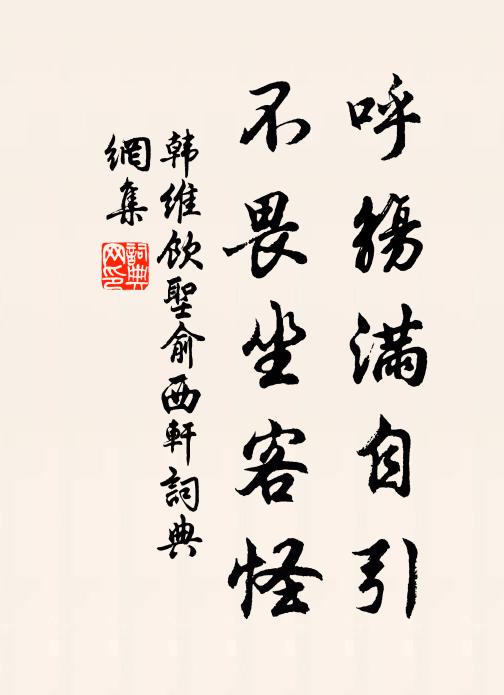 呼觞满自引
不畏坐客怪
韩维饮聖俞西軒詞典
網集
詞典
网印